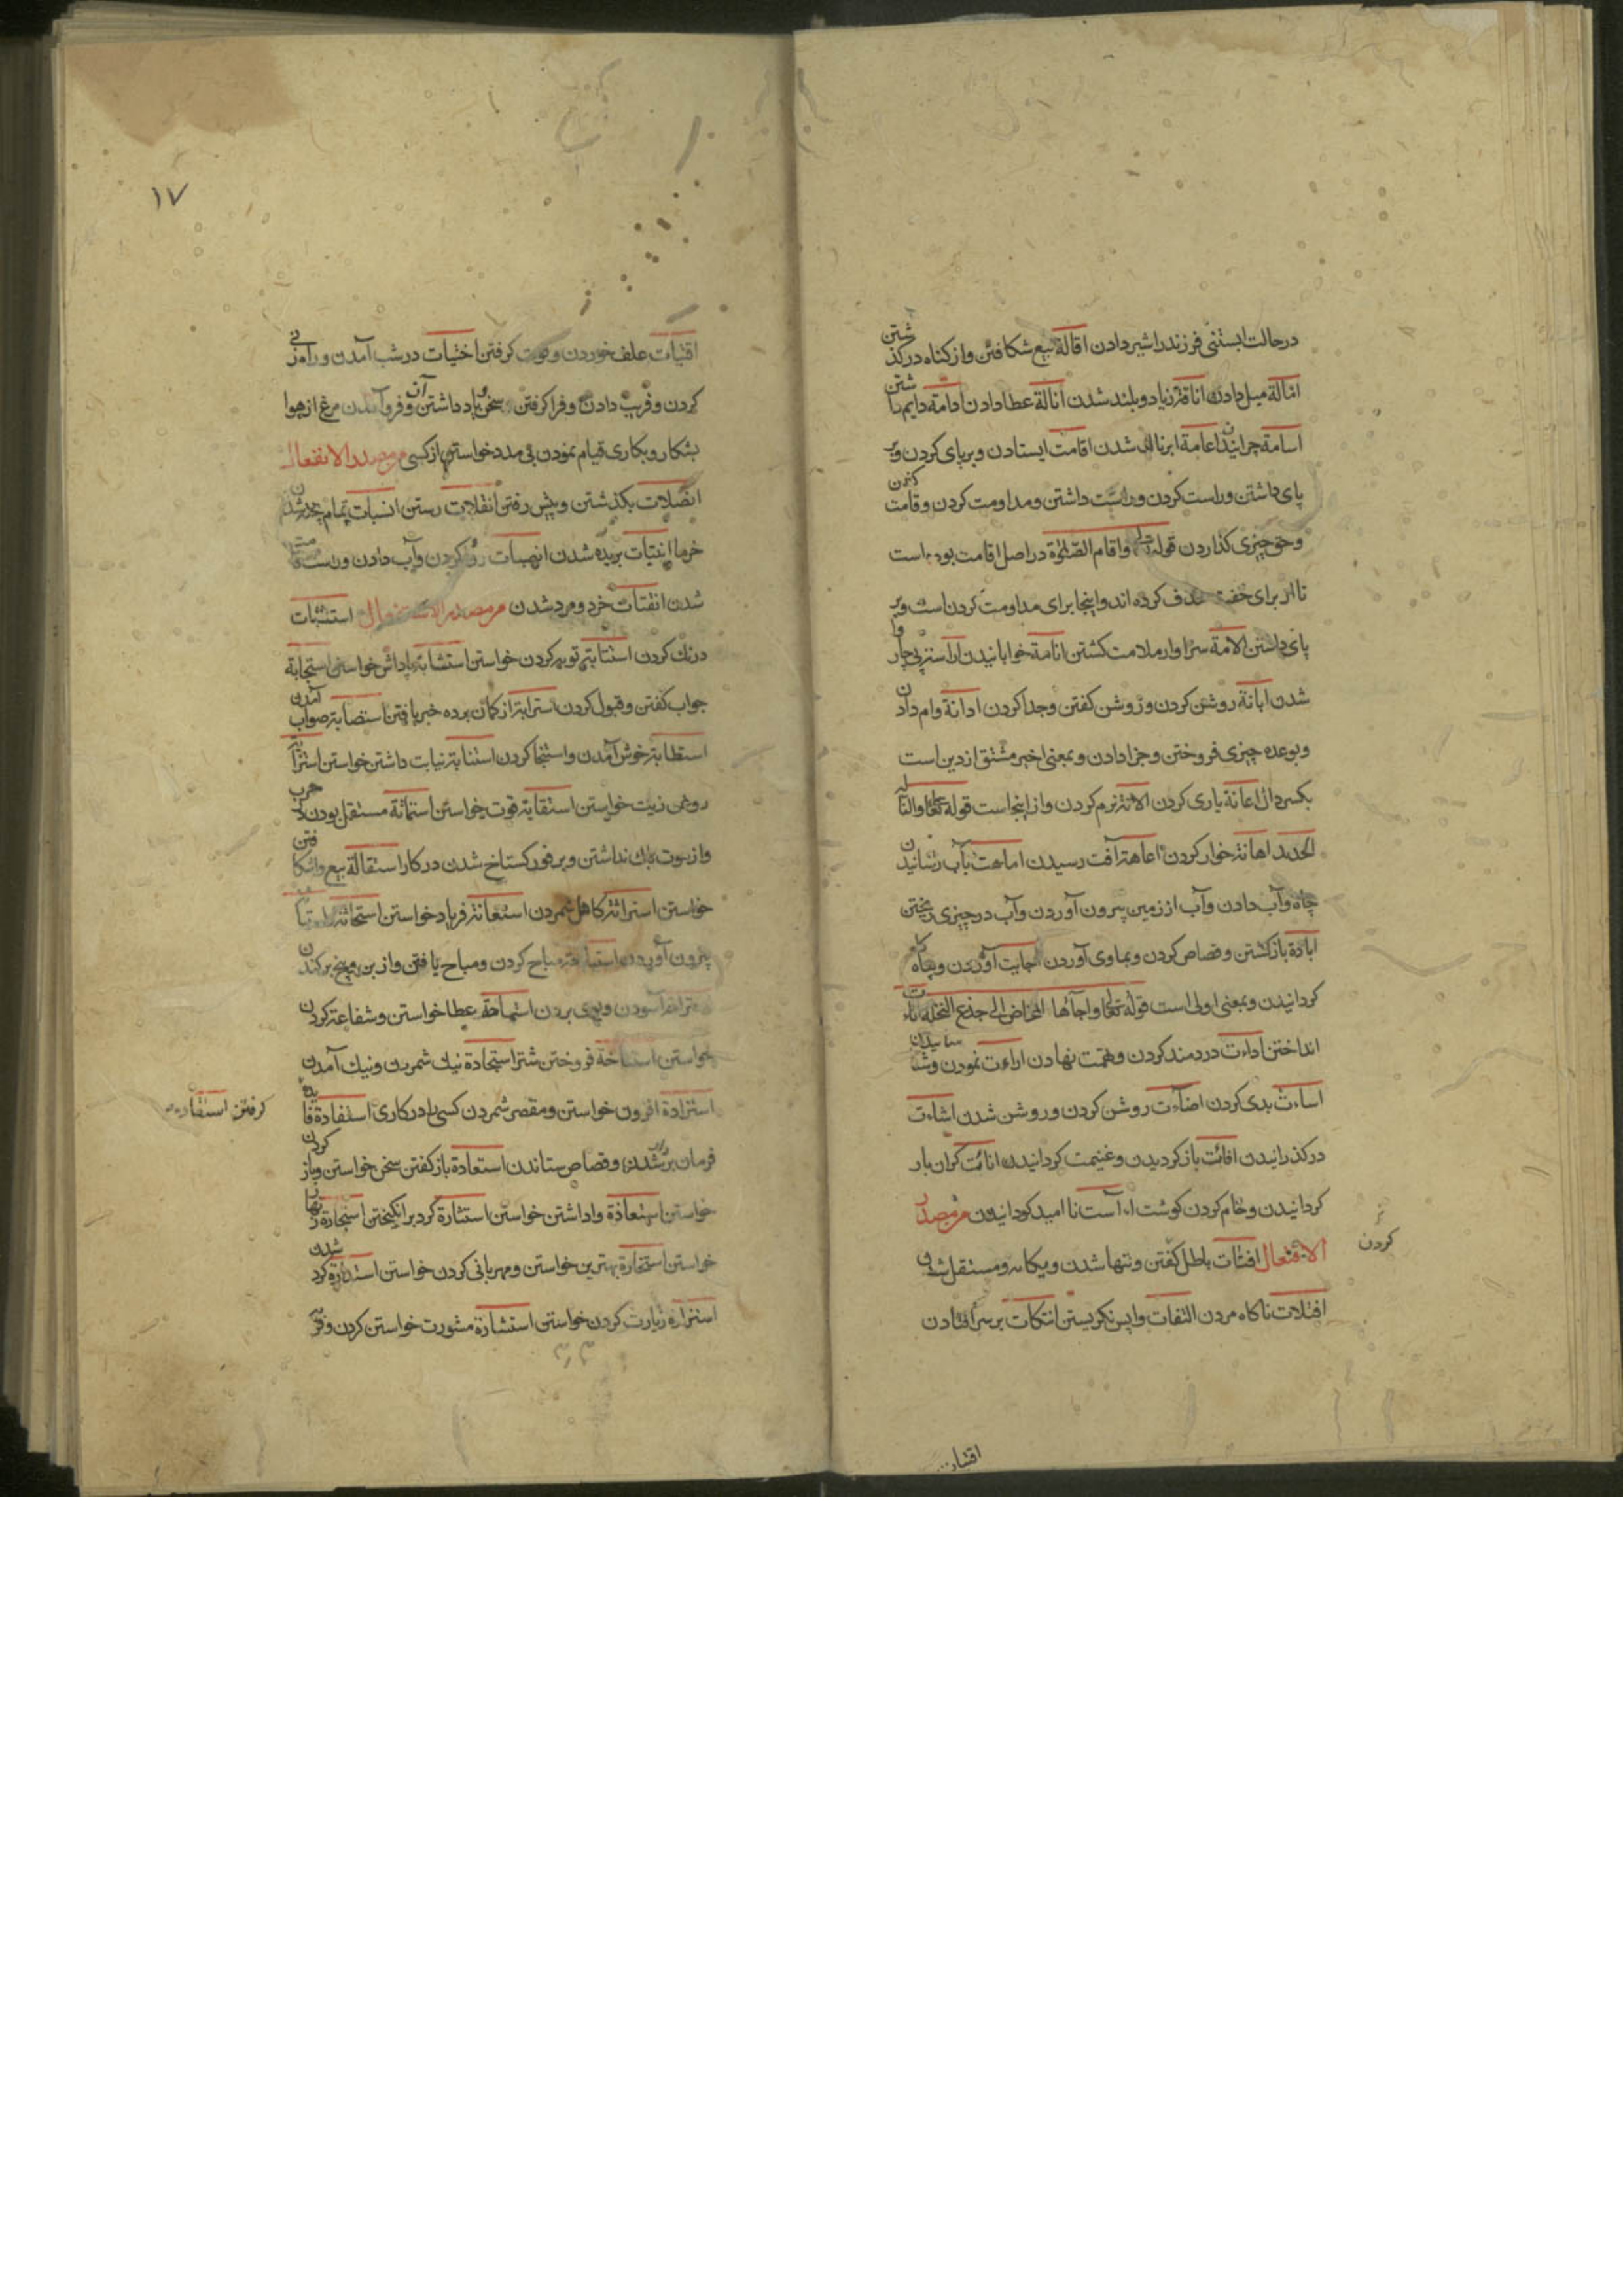 درحالت ابستنی فرزند را شیر دادن اقالة بیع شکافتن و از کناه درکذشتن
امالة میل دادن انافة زیاد و بلند شدن انالة عطا دادن ادامة دایم داشتن
اسامة چرانیدن اعامة ابرناک شدن اقامت ایستادن و برپای کردن و بر
پای داشتن و راست کردن و راست داشتن و مداومت کردن و قامت کفتن
و حق چیزی کذاردن قوله تعالی و اقام الصلوة در اصل اقامت بوده است
تا از برای خفت حذف کرده اند و اینجا برای مداومت کردن است و بر
پای داشتن الامة سزاوار ملامت کشتن انامة خوابانیدن
شدن ابانة روشن کردن و روشن کفتن و جدا کردن ادانة وام دادن
و بوعده چیزی فروختن و جزا دادن و بمعنی اخیر مشتق از دین است
بکسر دال اعانة یاری کردن الانة نرم کردن و از اینجاست قوله تعالی و النا له
الحدید اهانة خوار کردن اعاهة آفت رسیدن اماهت بآب رسانیدن
چاه و آب دادن و آب از زمین بیرون آوردن و آب در چیزی ریختن
اباءة باز کشتن و قصاص کردن و بماوی آوردن اجایت آوردن و پناه
کردانیدن و بمعنی اولی است قوله تعالی و اجآئها المخاض الی جذع النخلة
انداختن اداءت دردمند کردن و تهمت نهادن اراءت نمودن و شناسانیدن
اساءت بدی کردن اضآءت روشن کردن و روشن شدن اشاءت
درکذرانیدن افائت باز کردیدن و غنیمت کردانیدن انائت کران بار
کردانیدن و خام کردن کوشت اءآست نا امید کردانیدن مر مصدر
کردن
الافتعال افتئات باطل کفتن و تنها شدن و یکانه و مستقل شدن
افتلات ناکاه مردن التفات واپس نکریستن انتکات بر سر افتادن
اقتیات
۱۷
اقتیات علف خوردن و قوت کرفتن اختیات در شب آمدن و راه زنی
کردن و فریب دادن و فرا کرفتن سخن و یاد داشتن آن و فرو آمدن مرغ از هوا
بشکار و بکاری قیام نمودن بی مدد خواستن از کسی مر مصدر الانفعال
انصلات بکذشتن و پیش رفتن انفلات رستن انسبات تمام پخته شدن
خرما انبتات بریده شدن انهیات کردن و آب دادن و راست
شدن انفتات خرد و مرد شدن مر مصدر الاستفعال استثبات
درنک کردن استتابة توبه کردن خواستن استثابة پاداش خواستن استجابة
جواب کفتن و قبول کردن استرابة از کمان بوده خبر یافتن استصابة صواب آمدن
استطابة خوش آمدن و استنجا کردن استنابة نیابت داشتن خواستن
روغن زیت خواستن استقاتة قوت خواستن استماتة مستقل بودن در حرب
و از موت باک نداشتن و بر فور کستاخ شدن در کار استقالة بیع واشکافتن
خواستن استراثة کاهل شمردن استغاثة فریاد خواستن استحاثة
بیرون آوردن استباحة مباح کردن و مباح یافتن و از بن و بیخ برکندن
استراحة آسودن و بوی بردن استماحة عطا خواستن و شفاعة کردن
خواستن استناخة فروختن شتر استجادة نیک شمردن و نیک آمدن
استزادة افزون خواستن و مقصر شمردن کسی را در کاری استفادة فایده
کرفتن استقادة
فرمان بردار شدن و قصاص ستاندن استعادة باز کفتن سخن خواستن و باز کردن
خواستن استعاذة واداشتن خواستن استثارة کرد برانکیختن استجارة زنهار
خواستن استخارة بهترین خواستن و مهربانی کردن خواستن استدارة کرد شدن
استزارة زیارت کردن خواستن استشارة مشورت خواستن کردن و